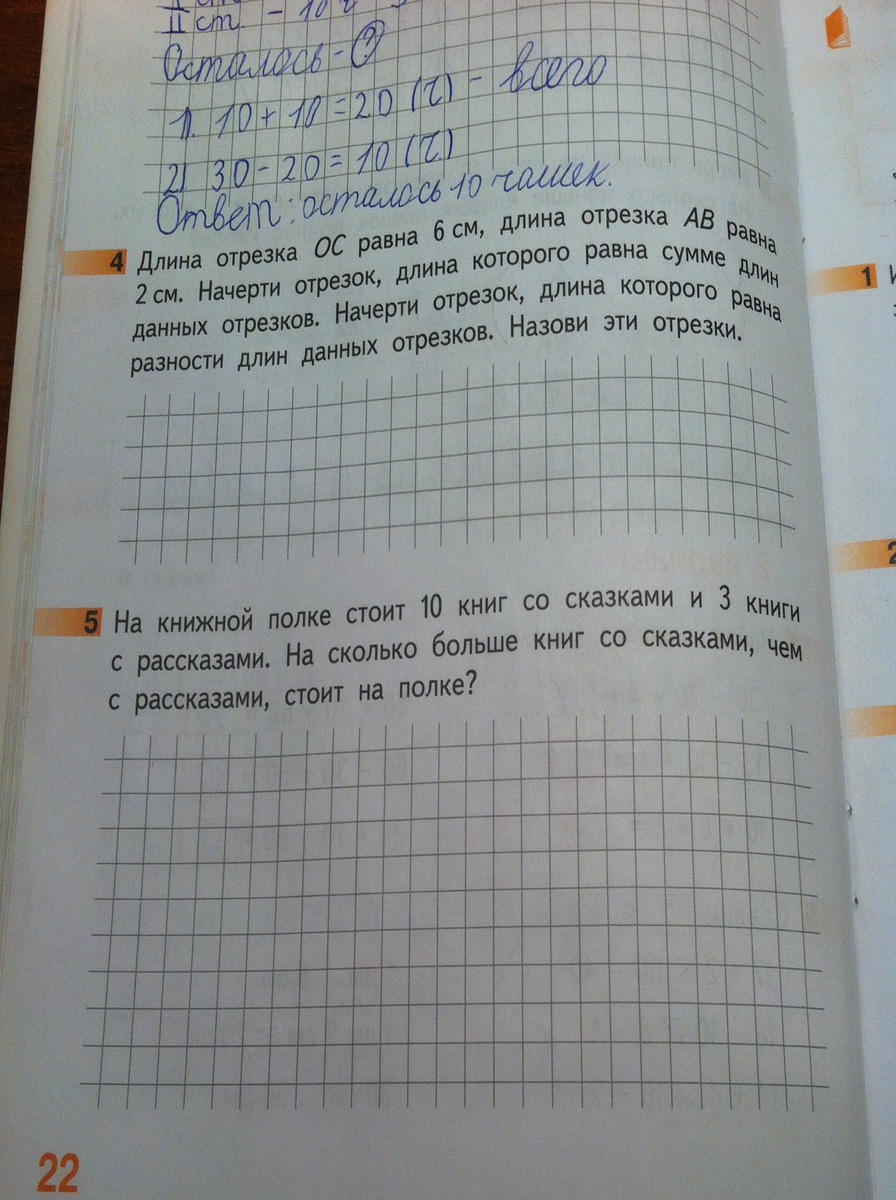 II ст. - 10 ч
Осталось - ?
1. 10 + 10 = 20 (ч.) - всего
2) 30 - 20 = 10 (ч.)
Ответ: осталось 10 чашек.
4 Длина отрезка ОС равна 6 см, длина отрезка АВ равна
2 см. Начерти отрезок, длина которого равна сумме длин
данных отрезков. Начерти отрезок, длина которого равна
разности длин данных отрезков. Назови эти отрезки.
5 На книжной полке стоит 10 книг со сказками и 3 книги
с рассказами. На сколько больше книг со сказками, чем
с рассказами, стоит на полке?
22
1
2